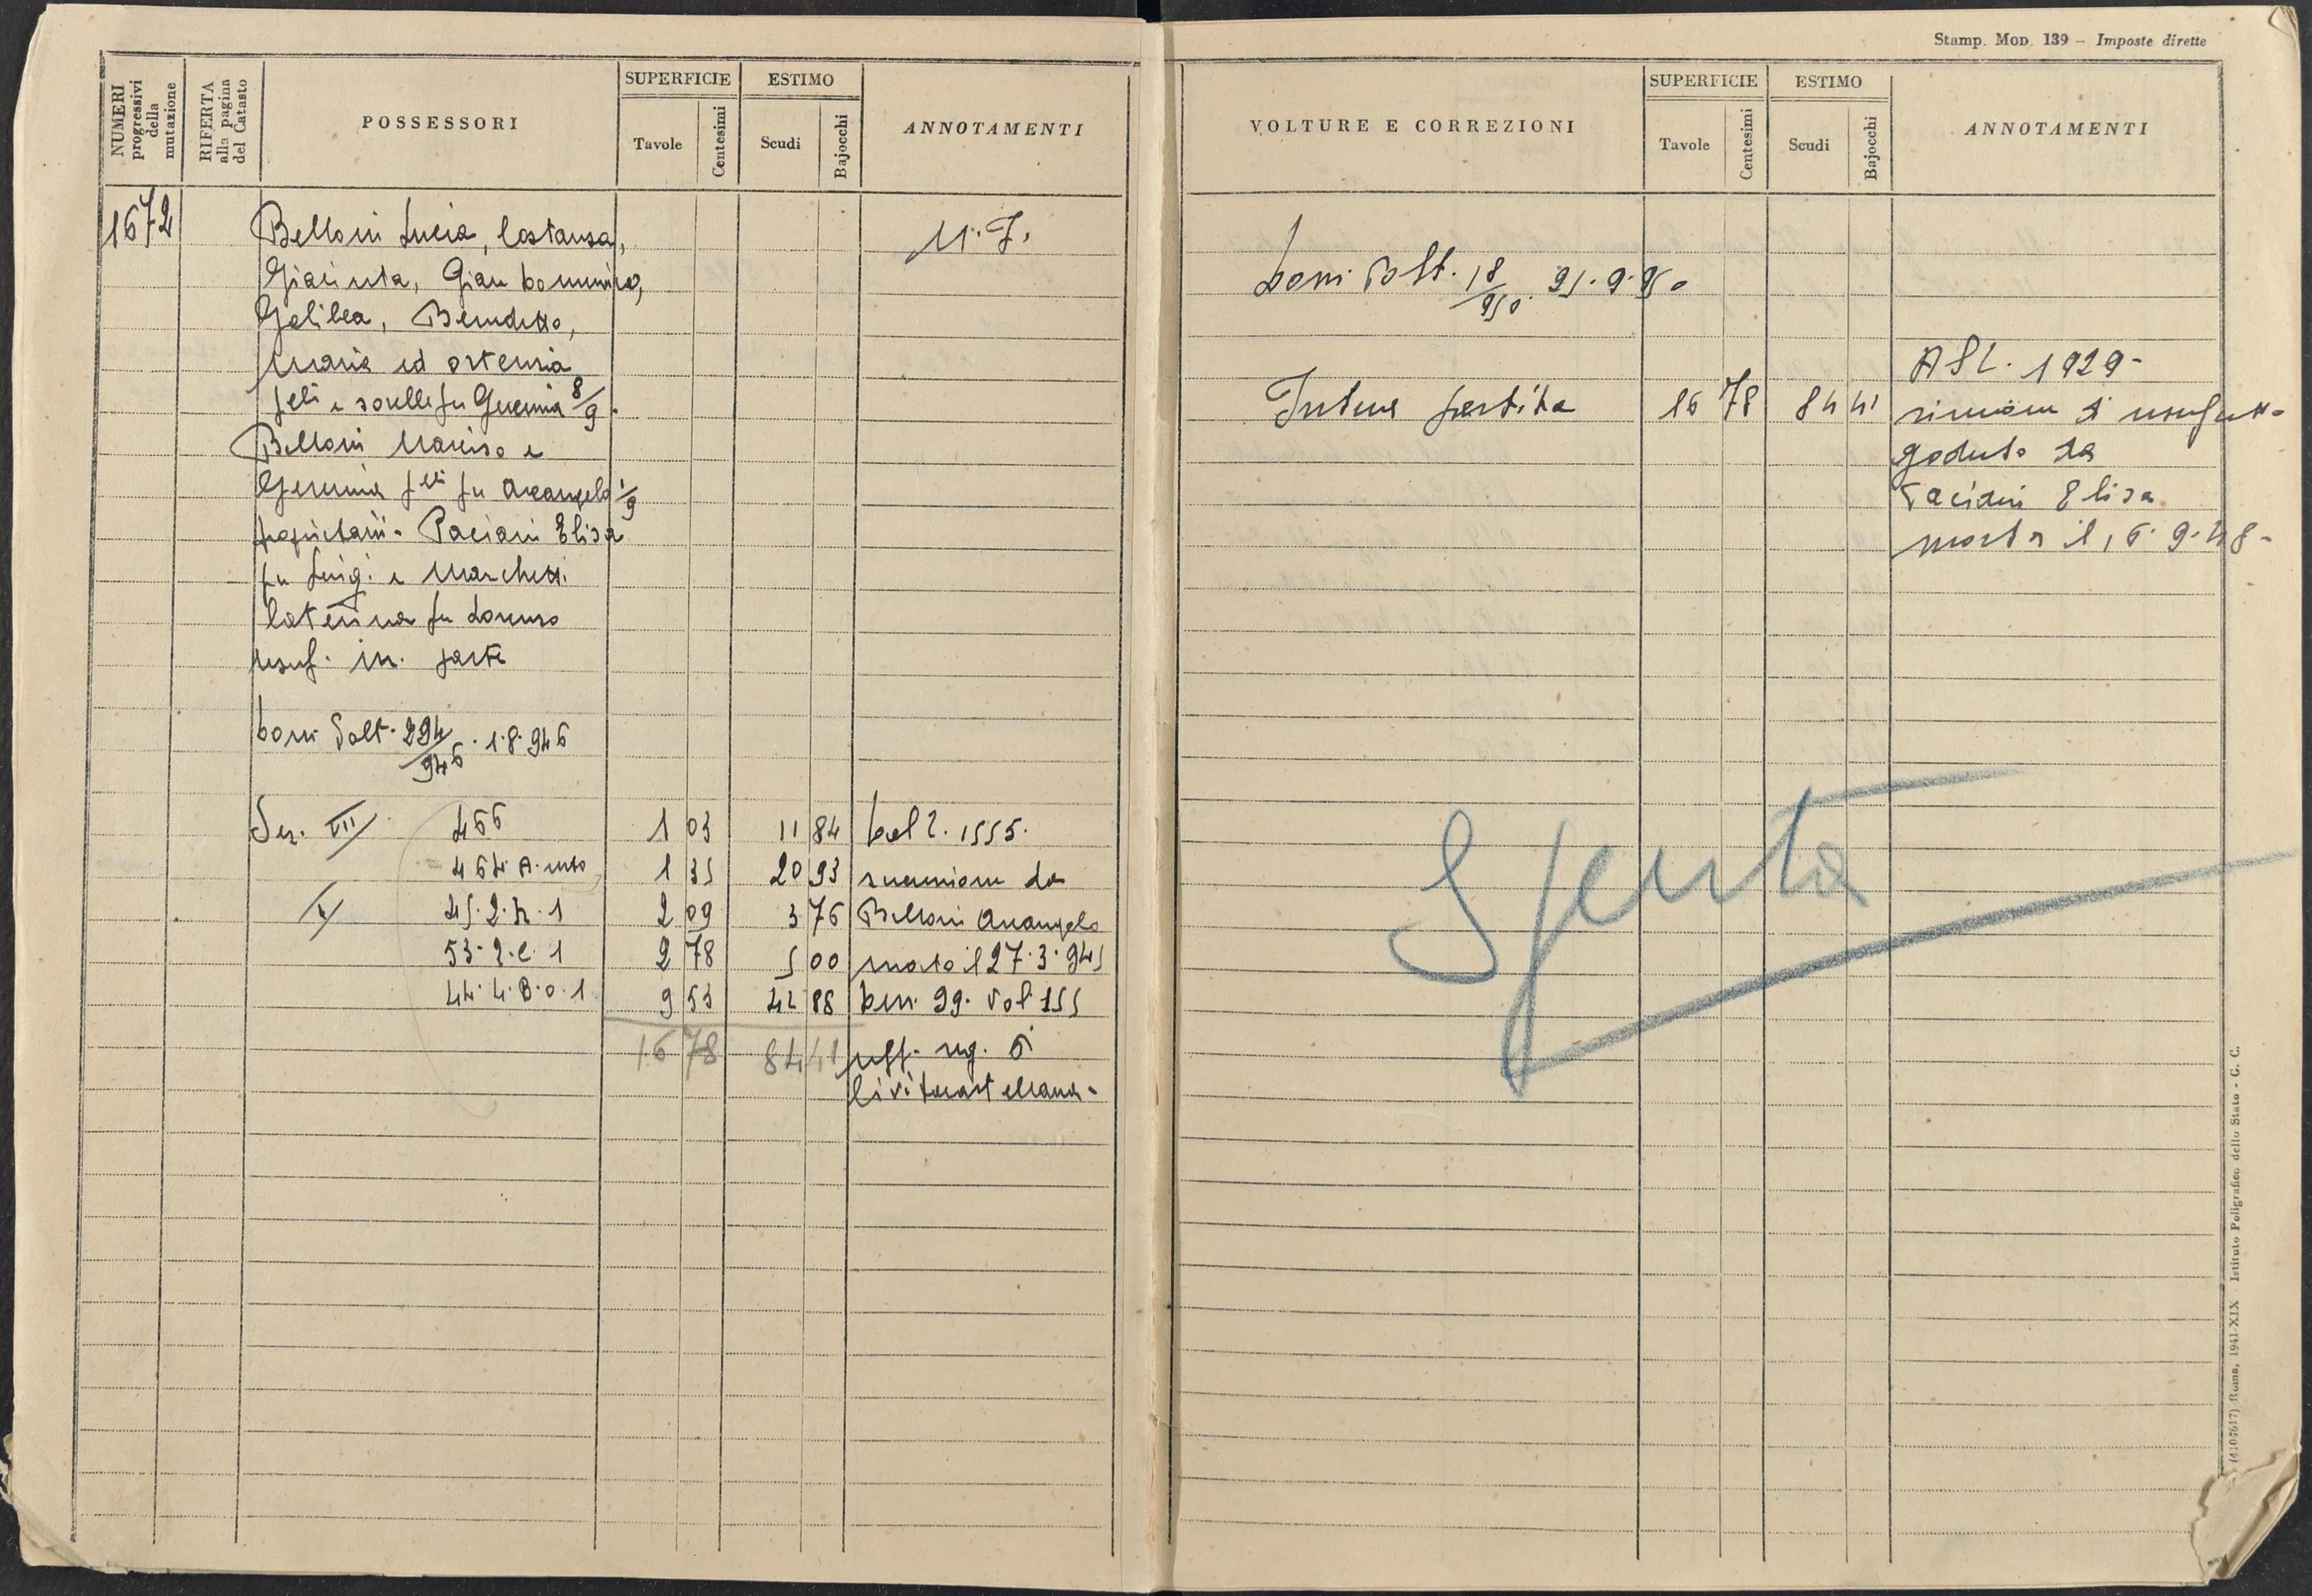 NUMERI progressivi della mutazione
RIFERTA alla pagina del Catasto
POSSESSORI
SUPERFICIE
Tavole
Centesimi
ESTIMO
Scudi
Bajocchi
ANNOTAMENTI
1672
Belloni Lucia, Costanza,
Giacinta, Gian Domenico,
Galilea, Benedetto,
Maria ed Ortensia
f.lli e sorelle fu Geremia 8/9.
Belloni Narciso e
Geremia f.lli fu Arcangelo 1/9
proprietarii. Paciani Elisa
fu Luigi e Marchetti
Caterina fu Lorenzo
usuf. in parte
M. F.
Dom Volt. 294/946. 1.8.946
Sez. VII 466 1 03 11 84 Cat 2. 1555.
464 A. 1 35 20 93 riunione da
V 45.2.H.1 2 09 3 76 Belloni Arcangelo
53.2.C.1 2 78 5 00 morto il 27.3.945
44.4.B.O.1 9 53 42 88 Den. 99. Vol 155
16 78 84 41 uff. reg. di
Civitacastellana.
Stamp. MOD. 139 – Imposte dirette
VOLTURE E CORREZIONI
SUPERFICIE
Tavole
Centesimi
ESTIMO
Scudi
Bajocchi
ANNOTAMENTI
Dom Volt. 18/950.
ASL. 1929-
Intera partita 16 78 84 41 riunione di usufrutto
goduto da
Elisa
morta il 16.9.48-
Spenta
Roma, 1941-XIX Istituto Poligrafico dello Stato - G. C.